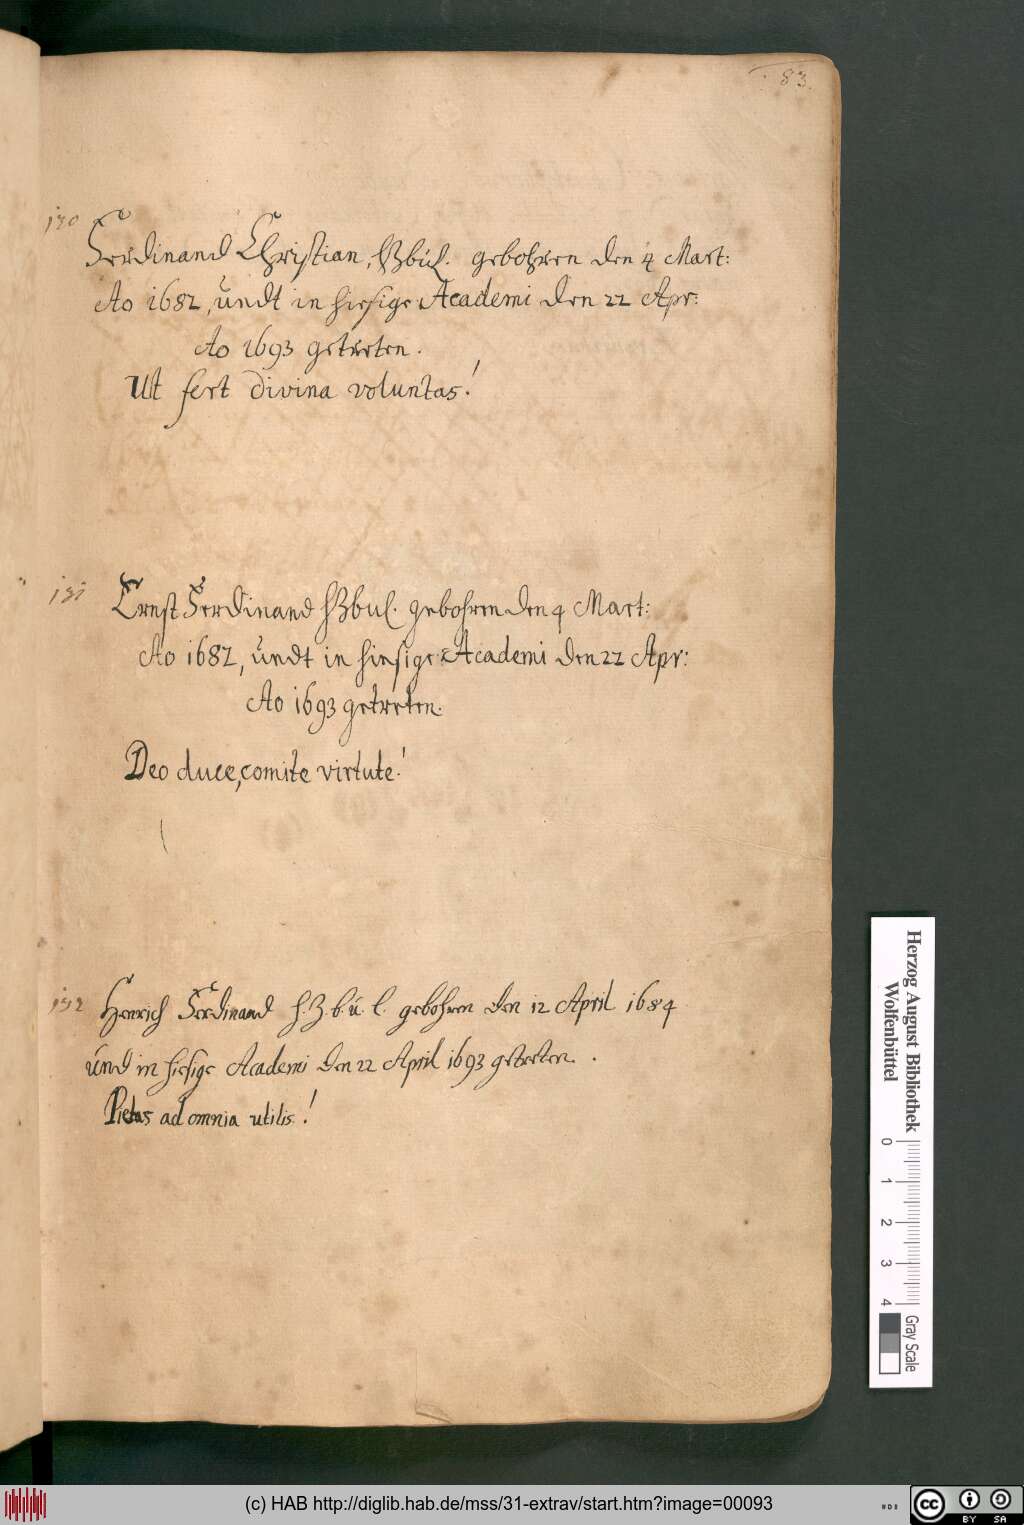 83.
130
Ferdinand Christian, HZbúL. gebohren den 4 Mart:
Ao 1682, ŭndt in hiesige Academi den 22 Apr:
Ao 1693 getreten.
Ut fert divina voluntas!
131
Ernst Ferdinand HZbuL. gebohren den 4 Mart:
Ao 1682, ŭndt in hiesige Academi den 22 Apr:
Ao 1693 getreten.
Deo duce, comite virtute!
132
Henrich Ferdinand H. Z. b. ú. L. gebohren den 12 April 1684
únd in hiesige Academi den 22 April 1693 getreten.
Pietas ad omnia utilis!
Herzog August Bibliothek
Wolfenbüttel
0 1 2 3 4
Gray Scale
(c) HAB http://diglib.hab.de/mss/31-extrav/start.htm?image=00093
cc BY SA